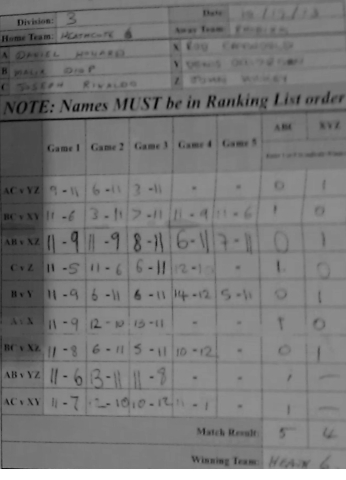 Division: 3 Date: 10/12/13
Home Team: HEATHCOTE 6 Away Team:
A DANIEL HOWARD X ROD
B DIOP Y DENIS
C JOSEPH RIVALDO Z JOHN
NOTE: Names MUST be in Ranking List order
Game 1 Game 2 Game 3 Game 4 Game 5 ABC XYZ
AC v YZ 9-11 6-11 3-11 - - 0 1
BC v XY 11-6 3-11 7-11 11-9 11-6 1 0
AB v XZ 11-9 11-9 8-11 6-11 7-11 0 1
C v Z 11-5 11-6 6-11 12-10 - 1 0
B v Y 11-9 6-11 6-11 14-12 5-11 0 1
A v X 11-9 12-10 13-11 - - 1 0
BC v XZ 11-8 6-11 5-11 10-12 - 0 1
AB v YZ 11-6 13-11 11-8 - - 1 -
AC v XY 11-7 12-10 10-12 11-1 - 1 -
Match Result: 5 4
Winning Team: HEATH 6